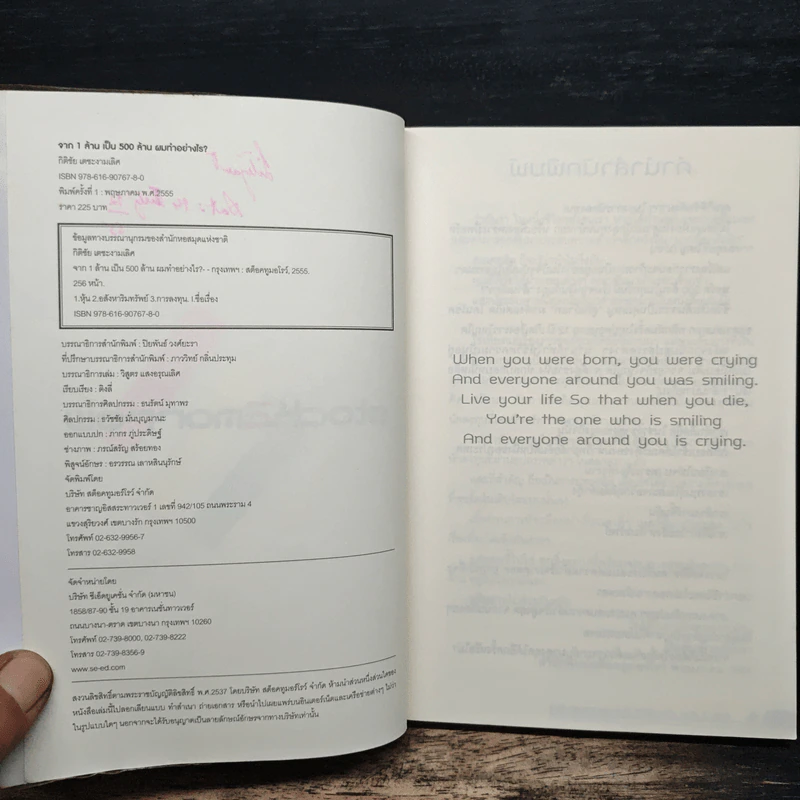 จาก 1 ล้าน เป็น 500 ล้าน ผมทำอย่างไร?
กิติชัย เตชะงามเลิศ
ISBN 978-616-90767-8-0
พิมพ์ครั้งที่ 1 : พฤษภาคม พ.ศ.2555
ราคา 225 บาท
ข้อมูลทางบรรณานุกรมของสำนักหอสมุดแห่งชาติ
กิติชัย เตชะงามเลิศ
จาก 1 ล้าน เป็น 500 ล้าน ผมทำอย่างไร?- - กรุงเทพฯ : สต็อคทูมอโรว์, 2555.
256 หน้า.
1.หุ้น 2.อสังหาริมทรัพย์ 3.การลงทุน. I.ชื่อเรื่อง
ISBN 978-616-90767-8-0
บรรณาธิการสำนักพิมพ์ : ปิยพันธ์ วงศ์ยะรา
ที่ปรึกษาบรรณาธิการสำนักพิมพ์ : ภาววิทย์ กลิ่นประทุม
บรรณาธิการเล่ม : วิสูตร แสงอรุณเลิศ
เรียบเรียง : ติงลี่
บรรณาธิการศิลปกรรม : ธนรัตน์ มุทาพร
ศิลปกรรม : ธวัชชัย มั่นบุญมานะ
ออกแบบปก : ภากร ภู่ประดิษฐ์
ช่างภาพ : ภรณ์ธรัญ สร้อยทอง
พิสูจน์อักษร : อรวรรณ เลาหสินนุรักษ์
จัดพิมพ์โดย
บริษัท สต็อคทูมอร์โรว์ จำกัด
อาคารชาญอิสสระทาวเวอร์ 1 เลขที่ 942/105 ถนนพระราม 4
แขวงสุริยวงศ์ เขตบางรัก กรุงเทพฯ 10500
โทรศัพท์ 02-632-9956-7
โทรสาร 02-632-9958
จัดจำหน่ายโดย
บริษัท ซีเอ็ดยูเคชั่น จำกัด (มหาชน)
1858/87-90 ชั้น 19 อาคารเนชั่นทาวเวอร์
ถนนบางนา-ตราด เขตบางนา กรุงเทพฯ 10260
โทรศัพท์ 02-739-8000, 02-739-8222
โทรสาร 02-739-8356-9
www.se-ed.com
สงวนลิขสิทธิ์ตามพระราชบัญญัติลิขสิทธิ์ พ.ศ.2537 โดยบริษัท สต็อคทูมอร์โรว์ จำกัด ห้ามนำส่วนหนึ่งส่วนใดของ
หนังสือเล่มนี้ไปลอกเลียนแบบ ทำสำเนา ถ่ายเอกสาร หรือนำไปเผยแพร่บนอินเตอร์เน็ตและเครือข่ายต่างๆ ไม่ว่า
ในรูปแบบใดๆ นอกจากจะได้รับอนุญาตเป็นลายลักษณ์อักษรจากทางบริษัทเท่านั้น
When you were born, you were crying
And everyone around you was smiling.
Live your life So that when you die,
You're the one who is smiling
And everyone around you is crying.